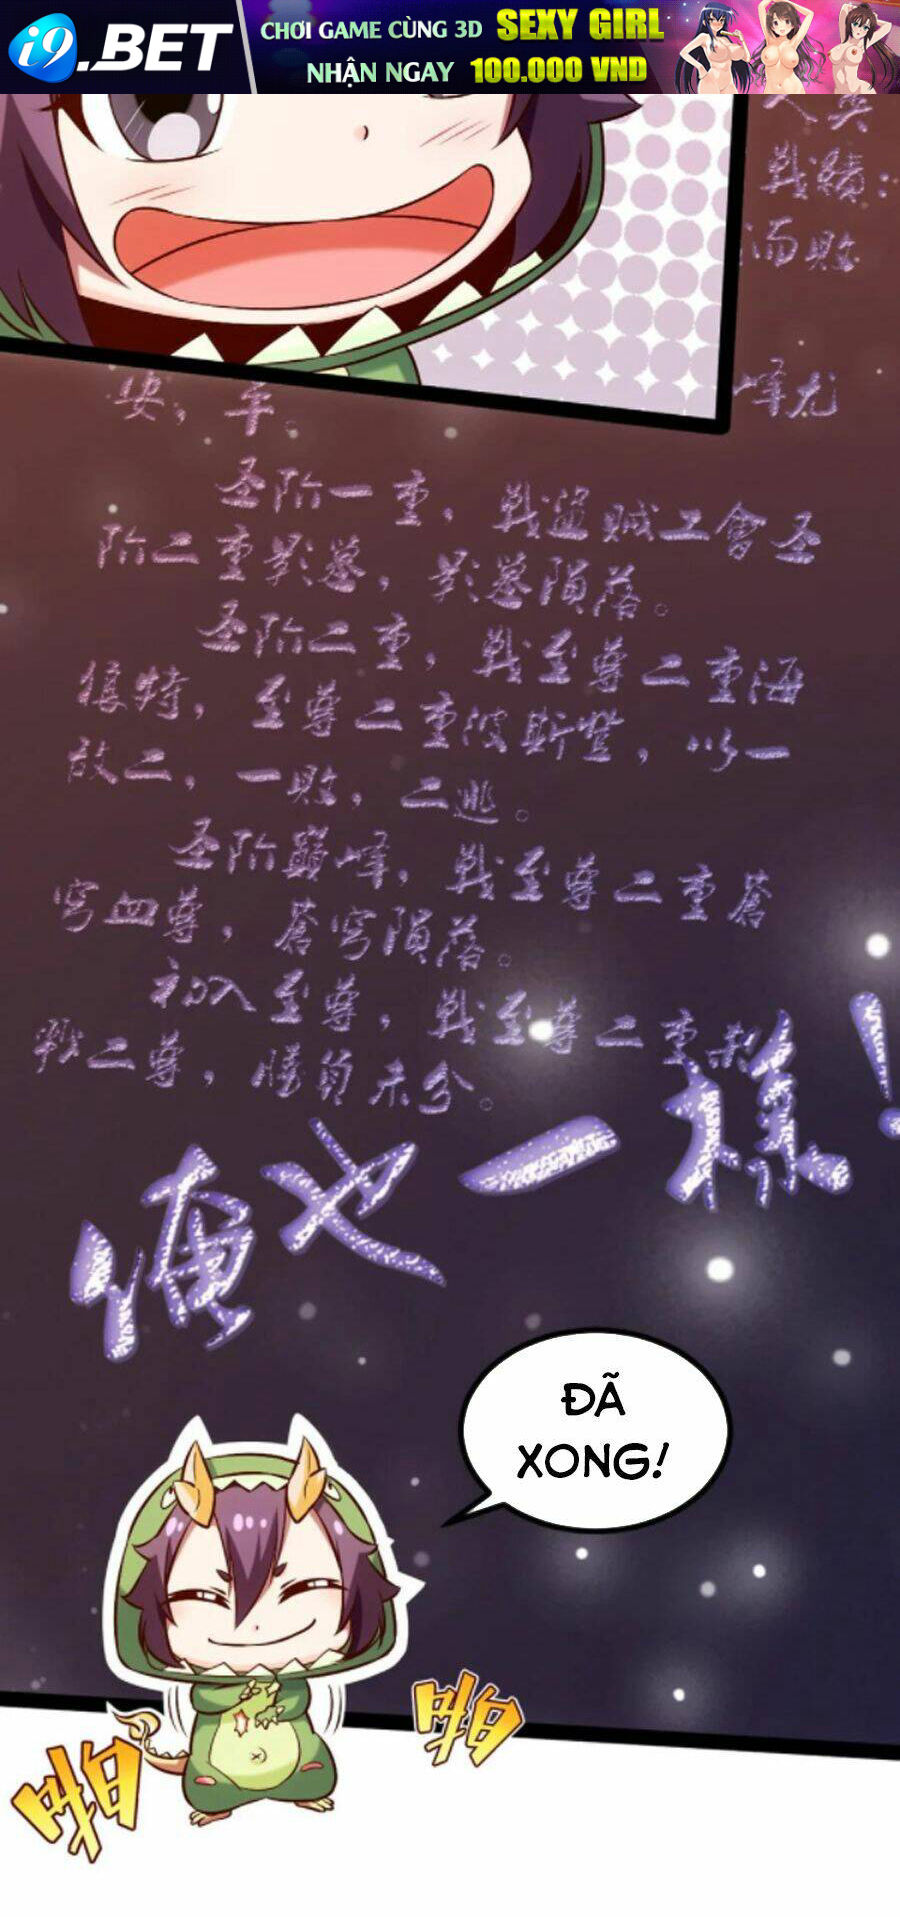 i9.BET
CHƠI GAME CÙNG 3D SEXY GIRL
NHẬN NGAY 100.000 VND
人英
戰績：
而敗
峰尤
安，卒。
圣阶一重，戰盜贼工會圣
阶二重影墓，影墓陨落。
圣阶二重，戰至尊二重海
狼特，至尊二重波斯登，以一
敌二，一敗，二逃。
圣阶巔峰，戰至尊二重蒼
穹血尊，蒼穹陨落。
初入至尊，戰至尊二重
二尊，勝負未分。
俺也一樣！
ĐÃ
XONG!
啪
啪